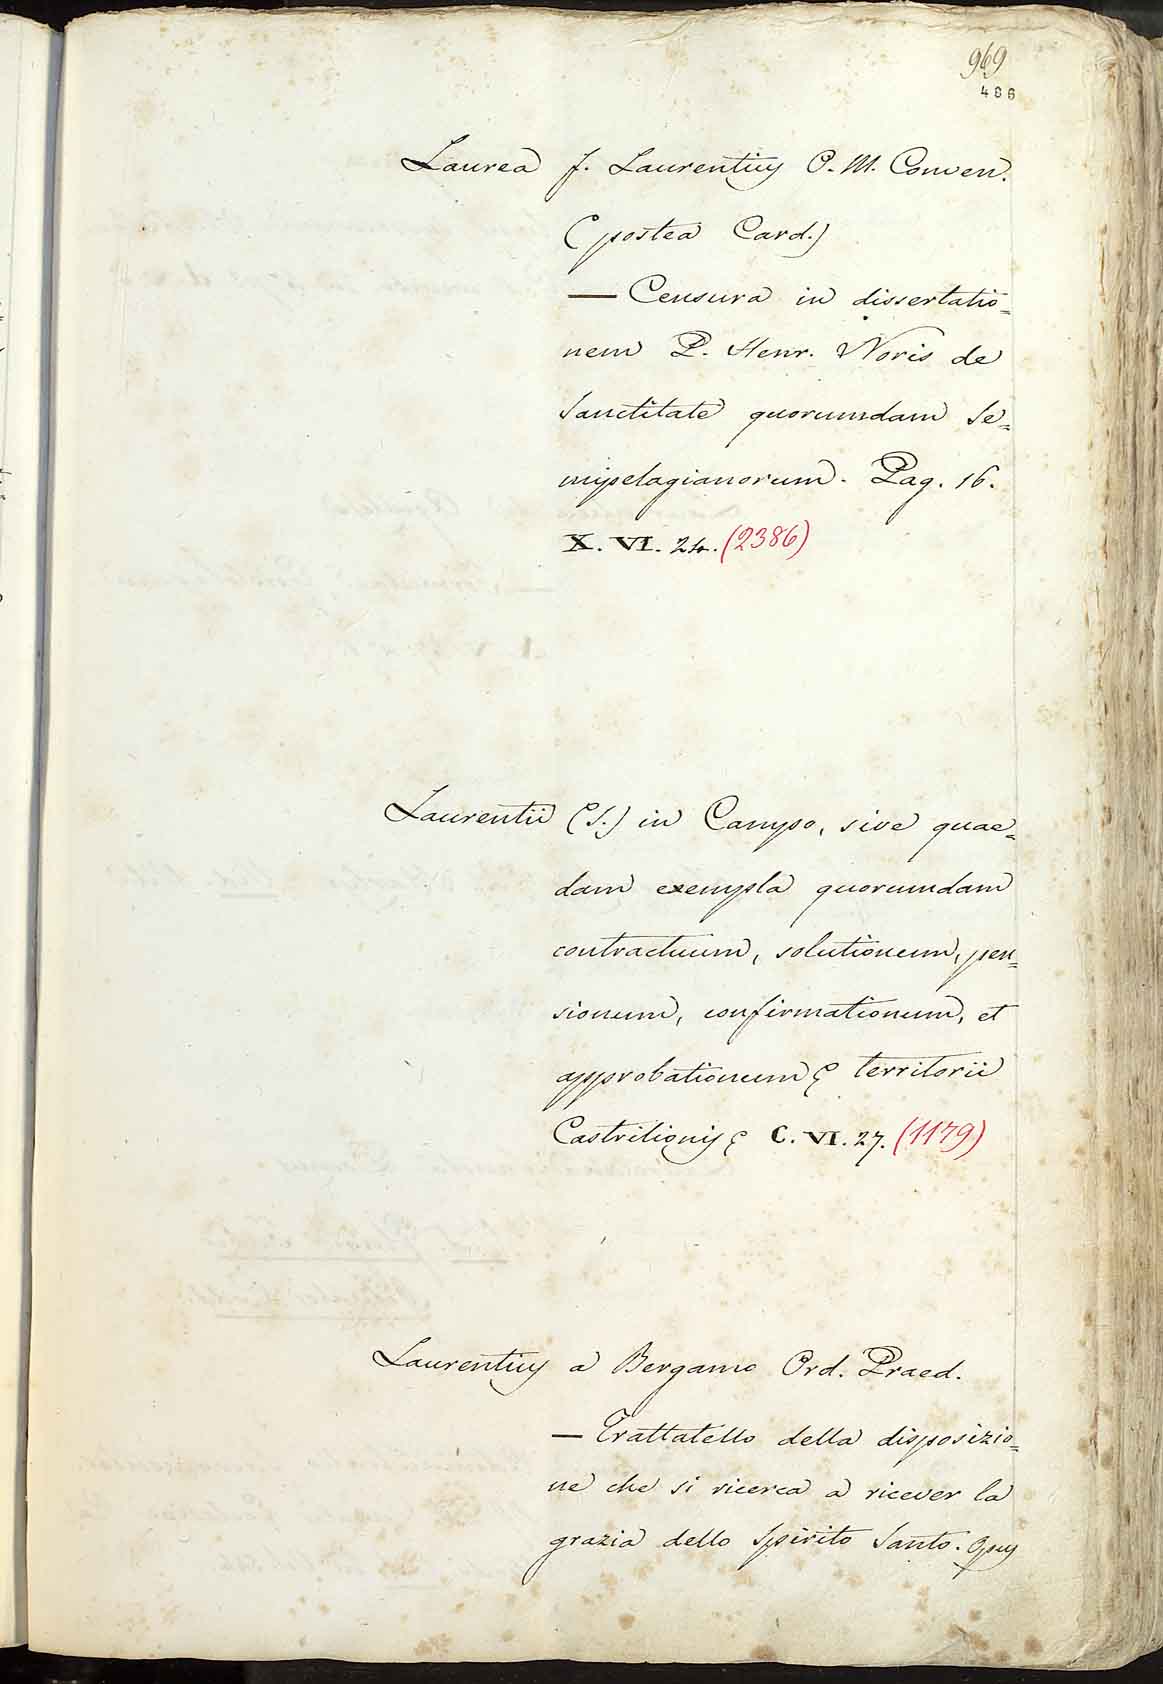 969
486
Laurea f. Laurentius O. M. Conven.
(postea Card.)
— Censura in dissertatio=
nem P. Henr. Noris de
Sanctitate quorumdam Se=
mipelagianorum. Pag. 16.
X. VI. 24. (2386)
Laurentii (S.) in Campo, sive quae=
dam exempla quorumdam
contractuum, solutionum, pen=
sionum, confirmationum, et
approbationum territorii
Castrilionis C. VI. 27. (1179)
Laurentius a Bergamo Ord. Praed.
— Trattatello della disposizio=
ne che si ricerca a ricever la
grazia dello Spirito Santo. Opus